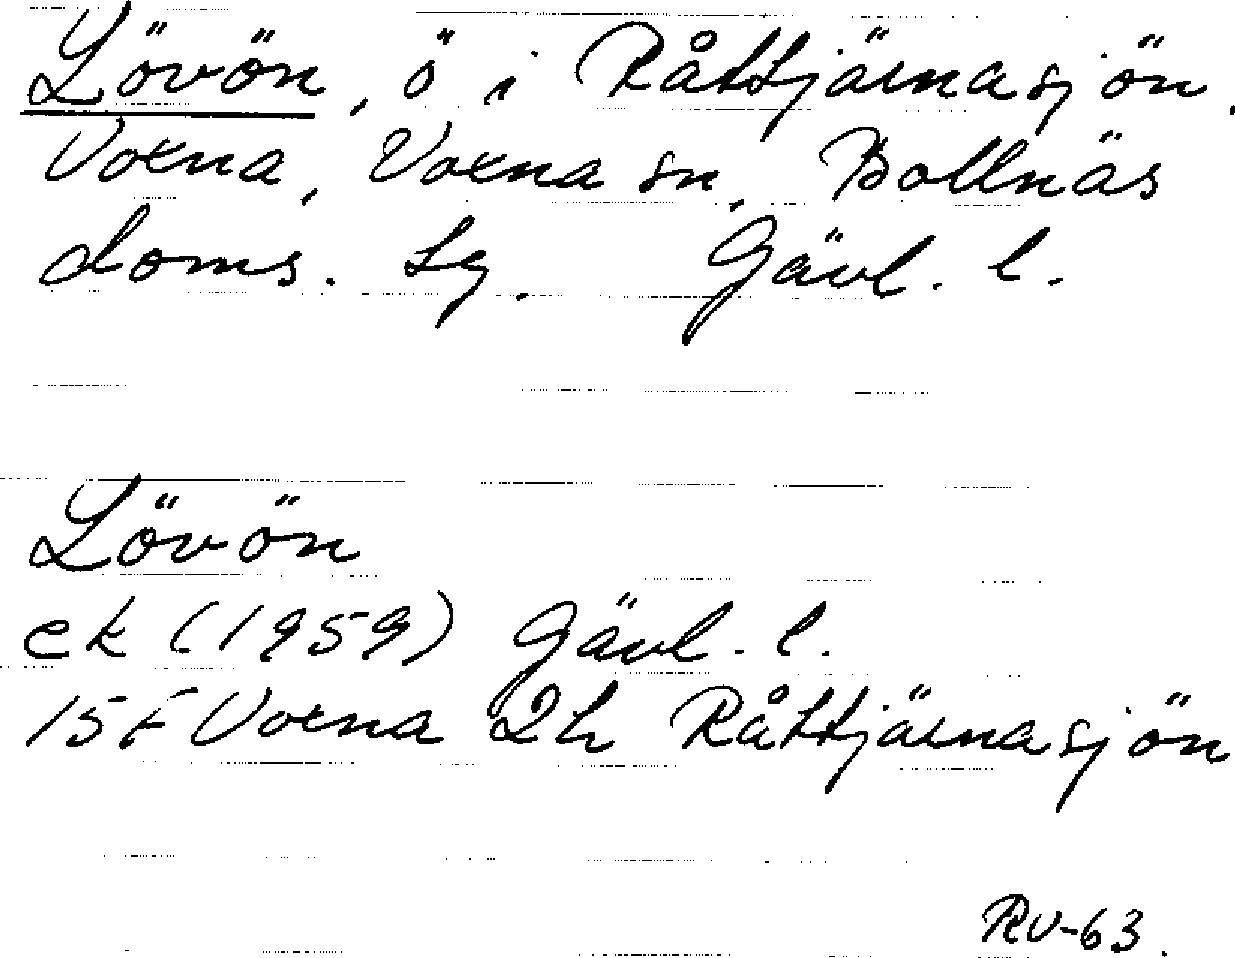 Lövön, ö i Råttjärnasjön.
Voxna, Voxna sn, Bollnäs
doms. sg. Gävl. l.
Lövön
ek (1959) Gävl. l.
15F Voxna 2h Råttjärnasjön
RV-63.